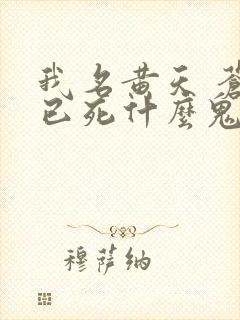 我名黄天 蒼
已死什麼鬼
穆薩納